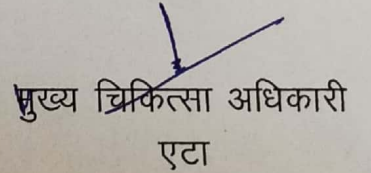 मुख्य चिकित्सा अधिकारी
एटा